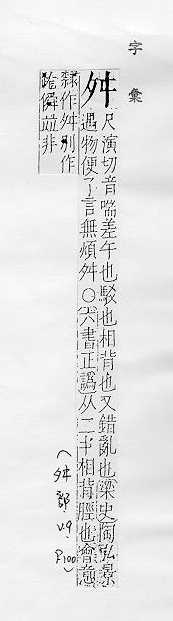 字彙
舛
尺演切音喘差午也駁也相背也又錯亂也梁史陶弘景
遇物便了言無煩舛○六書正譌从二㐄相背脛也會意
隸作舛別作
踳僢竝非
(舛部 v.9 P.100)